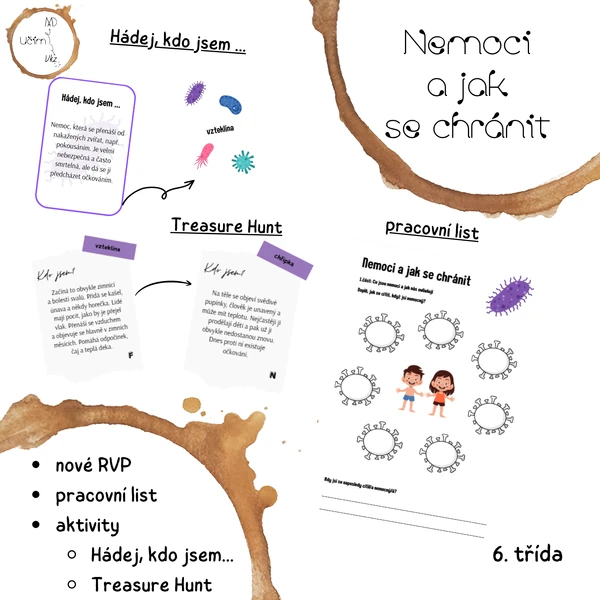 ND
Učím
Vkz
Hádej, kdo jsem ...
Nemoci
a jak
se chránit
Hádej, kdo jsem ...
Nemoc, která se přenáší od
nakažených zvířat, např.
pokousáním. Je velmi
nebezpečná a často
smrtelná, ale dá se jí
předcházet očkováním.
vzteklina
Treasure Hunt
vzteklina
Kdo jsem?
Začíná to obvykle zimnicí
a bolestí svalů. Přidá se kašel,
únava a někdy horečka. Lidé
mají pocit, jako by je přejel
vlak. Přenáší se vzduchem
a objevuje se hlavně v zimních
měsících. Pomáhá odpočinek,
čaj a teplá deka.
F
chřipka
Kdo jsem?
Na těle se objeví svědivé
pupínky, člověk je unavený a
může mít teplotu. Nejčastěji ji
prodělají děti a pak už ji
obvykle nedostanou znovu.
Dnes proti ní existuje
očkování.
N
pracovní list
Nemoci a jak se chránit
1.část: Co jsou nemoci a jak nás ovlivňují
Doplň, jak se cítíš, když jsi nemocný?
Kdy jsi se naposledy cítil/a nemocný/á?
nové RVP
pracovní list
aktivity
Hádej, kdo jsem...
Treasure Hunt
6. třída